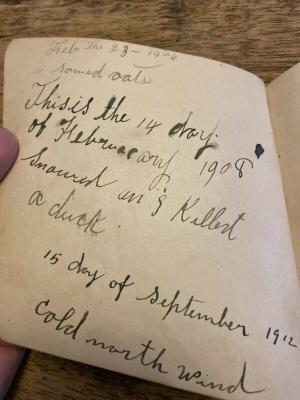 Feb the 23 - 1909
I sowed oats
This is the 14 day
of February 1908
Snowed an I Killed
a duck
15 day of September 1912
Cold north wind